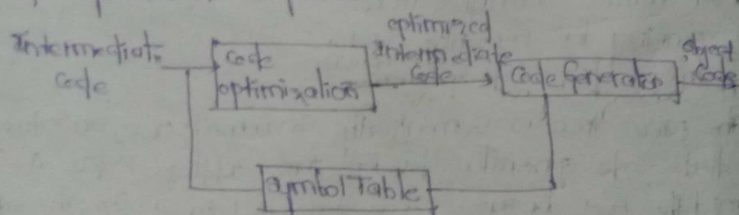 Intermediate
code
code
optimization
optimized
Intermediate
code
Code Generator
object
code
Symbol Table